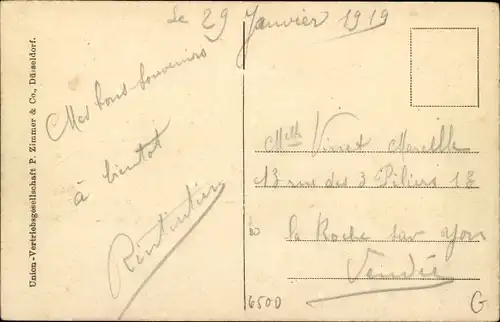 Le 29 Janvier 1919
Mes bons souvenirs
à bientot
Mlle Vinet Marcelle
13 rue des 3 Piliers 13
la Roche sur Yon
Vendée
6500
G
Union-Vertriebsgesellschaft P. Zimmer & Co., Düsseldorf.